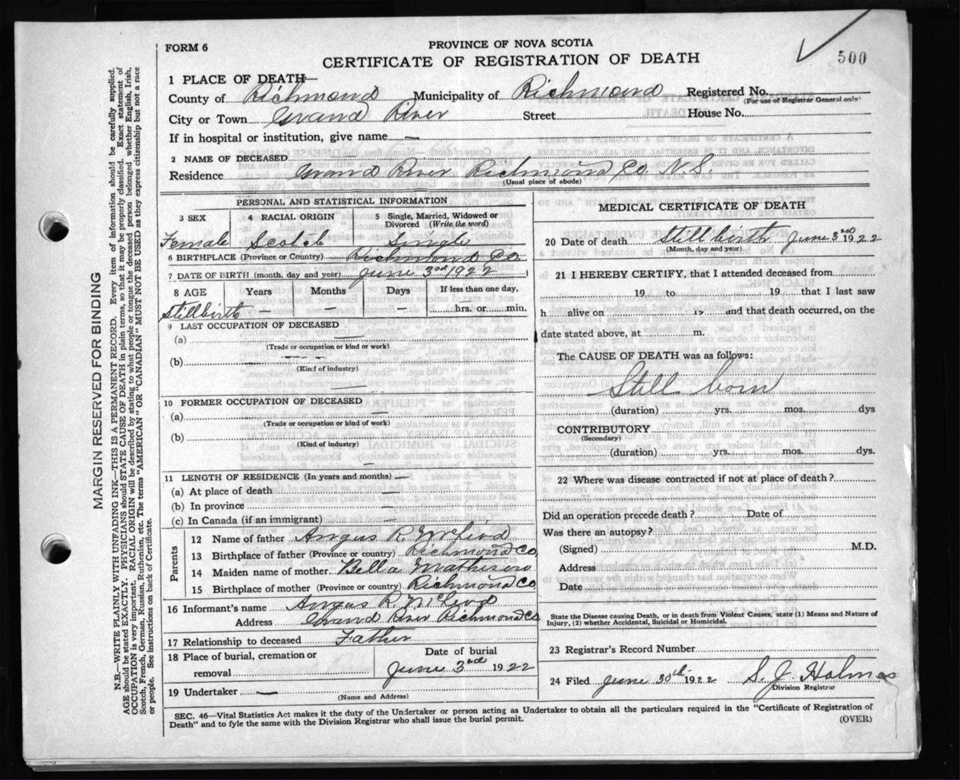 FORM 6
PROVINCE OF NOVA SCOTIA
CERTIFICATE OF REGISTRATION OF DEATH
500
1 PLACE OF DEATH—
County of Richmond Municipality of Richmond Registered No.
(For use of Registrar General only)
City or Town Grand River Street House No.
If in hospital or institution, give name —
2 NAME OF DECEASED
Residence Grand River Richmond Co. N.S.
(Usual place of abode)
PERSONAL AND STATISTICAL INFORMATION
3 SEX 4 RACIAL ORIGIN 5 Single, Married, Widowed or Divorced (Write the word)
Female Scotch Single
6 BIRTHPLACE (Province or Country) Richmond Co
7 DATE OF BIRTH (month, day and year) June 3rd 1922
8 AGE Years Months Days If less than one day,
Stillbirth — — — hrs. or min.
9 LAST OCCUPATION OF DECEASED
(a)
(Trade or occupation or kind of work)
(b)
(Kind of industry)
10 FORMER OCCUPATION OF DECEASED
(a) —
(Trade or occupation or kind of work)
(b) —
(Kind of industry)
11 LENGTH OF RESIDENCE (In years and months) —
(a) At place of death —
(b) In province —
(c) In Canada (if an immigrant) —
Parents
12 Name of father Angus R. McLeod
13 Birthplace of father (Province or country) Richmond Co
14 Maiden name of mother Bella Matheson
15 Birthplace of mother (Province or country) Richmond Co
16 Informant's name Angus R. McLeod
Address Grand River Richmond Co
17 Relationship to deceased Father
18 Place of burial, cremation or removal Date of burial
June 3rd 1922
19 Undertaker —
(Name and Address)
MEDICAL CERTIFICATE OF DEATH
20 Date of death Still birth June 3rd 1922
(Month, day and year)
21 I HEREBY CERTIFY, that I attended deceased from
19 to 19 that I last saw
h alive on 19 and that death occurred, on the
date stated above, at m.
The CAUSE OF DEATH was as follows:
Still born
(duration) yrs. mos. dys
CONTRIBUTORY
(Secondary)
(duration) yrs. mos. dys.
22 Where was disease contracted if not at place of death?
Did an operation precede death? Date of
Was there an autopsy?
(Signed) M.D.
Address
Date
State the Disease Causing Death, or in death from Violent Causes, state (1) Means and Nature of
Injury, (2) whether Accidental, Suicidal or Homicidal.
23 Registrar's Record Number
24 Filed June 30th 1922 S. J. Holmes
Division Registrar
SEC. 46—Vital Statistics Act makes it the duty of the Undertaker or person acting as Undertaker to obtain all the particulars required in the "Certificate of Registration of
Death" and to fyle the same with the Division Registrar who shall issue the burial permit.
(OVER)
MARGIN RESERVED FOR BINDING
N.B.—WRITE PLAINLY WITH UNFADING INK—THIS IS A PERMANENT RECORD. Every item of information should be carefully supplied.
AGE should be stated EXACTLY. PHYSICIANS should STATE CAUSE OF DEATH in plain terms, so that it may be properly classified. Exact statement of
OCCUPATION is very important. RACIAL ORIGIN will be described by stating to what people or tongue the deceased person belonged whether English, Irish,
Scotch, French, German, Russian, Ruthenian, etc. The terms "AMERICAN" OR "CANADIAN" MUST NOT BE USED as they express citizenship but not a race
or people. See instructions on back of Certificate.